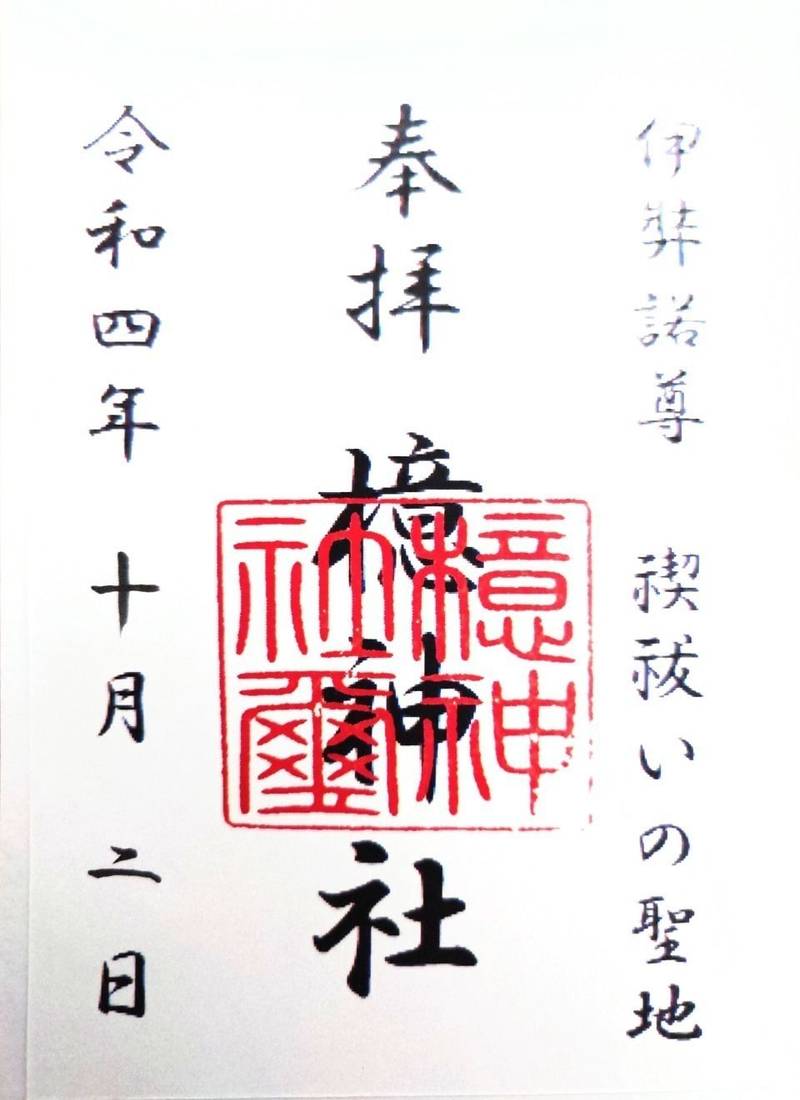 伊弉諾尊　禊祓いの聖地
奉拝　檍神社
檍神
社璽
令和四年　十月　二日